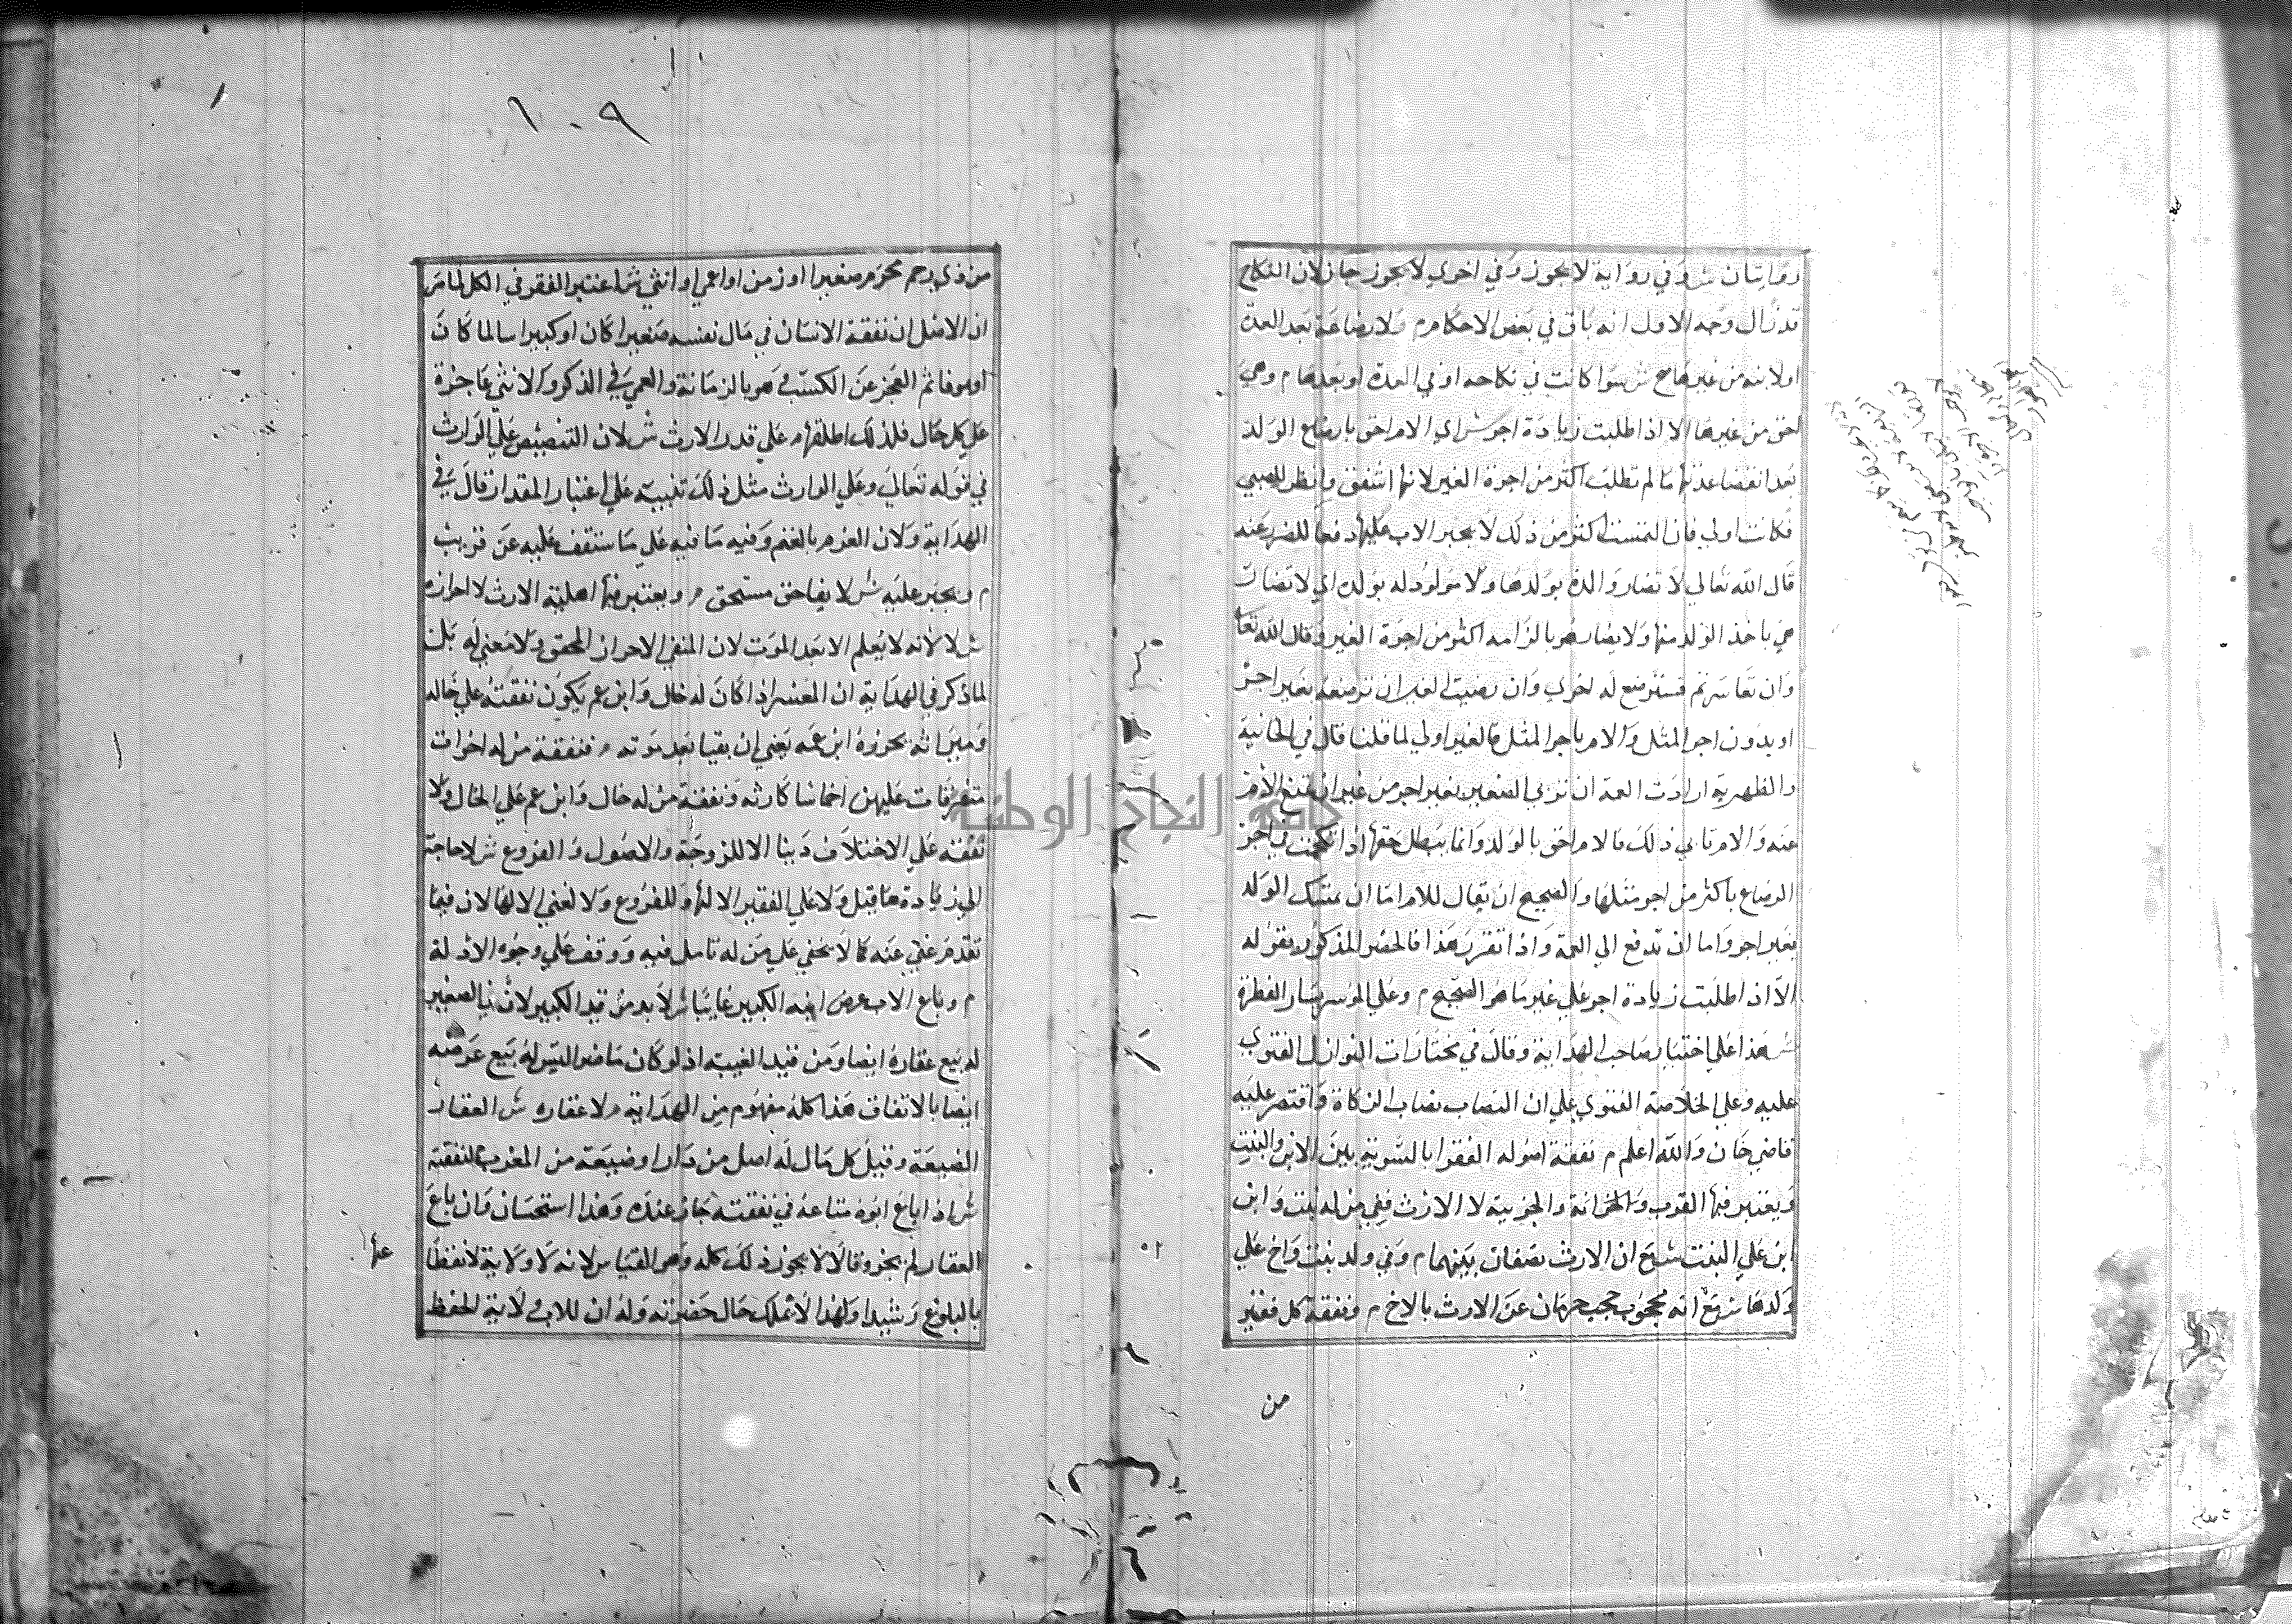 ١٠٩
روايتان ش وفي رواية لا يجوز وفي اخرى لا يجوز جاز لان النكاح
قد زال وجه الاول انه باق في بعض الاحكام م ولارضاعه بعد العدة
او لابنه من غيرها صح ش سوا كانت في نكاحه او في العدة او بعدها م وهي
احق من غيرها الا اذا طلبت زيادة اجر ش اي الام احق بارضاع الولد
بعد انقضا عدتها ما لم تطلب اكثر من اجرة الغير لانها اشفق وانظر للصبي
فكانت اولي فان التمست اكثر من ذلك لا يجبر الاب عليها دفعا للضرر عنه
قال الله تعالي لا تضار والدة بولدها ولا مولود له بولده اي لا تضارت
هي باخذ الولد منها ولا يضار هو بالزامه اكثر من اجرة الغير وقال الله تعا
وان تعاسرتم فسترضع له اخري وان رضيت الغير ان ترضعه بغير اجر
او بدون اجر المثل والام باجر المثل فالغير اولي لما قلنا قال في الخانية
والظهرية ارادت العمة ان تربي الصغير بغير اجر من غير ان تمنع الام
عنه والام تابي ذلك فالام احق بالولد وانما يبطل حقها اذا تحكمت في اجر
الرضاع باكثر من اجر مثلها والصحيح ان يقال للام اما ان تمسك الولد
بغير اجر واما ان تدفع الي العمة واذا تقرر هذا فالحصر المذكور بقوله
الا اذا طلبت زيادة اجر علي غير ما هو الصحيح م وعلي الموسر يسار الفطرة
ش هذا علي اختيار صاحب الهداية وقال في مختارات النوازل الفتوي
عليه وعلي الخلاصة الفتوي علي ان النصاب نصاب الزكاة واقتصر عليه
قاضي خان والله اعلم م نفقة اصوله الفقرا بالسوية بين الابن والبنت
ويعتبر فيها القرب والجزئية لا الارث ففي من له بنت وابن
ابن علي البنت ش مع ان الارث نصفان بينهما م وفي ولد بنت واخ علي
ولدها ش مع انه محجوب حجب حرمان عن الارث بالاخ م ونفقة كل فقير
من
من ذي رحم محرم صغيرا او زمن او اعمي او انثي ش اعتبر الفقر في الكل لما مر
ان الاصل ان نفقة الانسان في مال نفسه صغيرا كان او كبيرا سالما كان
او موفا ثم العجز عن الكسب وهو بالزمانة والعمي في الذكر والانثي عاجزة
علي كل حال فلذلك اطلقها م علي قدر الارث ش لان التنصيص علي الوارث
في قوله تعالي وعلي الوارث مثل ذلك تنبيه علي اعتبار المقدار قال في
الهداية ولان الغرم بالغنم وفيه ما فيه علي ما ستقف عليه عن قريب
م ويجبر عليه ش لايفا حق مستحق م ويعتبر فيها اهلية الارث لا احرازه
ش لا لانه لا يعلم الا بعد الموت لان المنفي الاحراز المحقق ولا معني له بل
لما ذكر في الهداية ان المعسر اذا كان له خال وابن عم يكون نفقته علي خاله
وميراثه يحرزه ابن عمه يعني ان بقيا بعد موته م فنفقة من له اخوات
متفرقات عليهن اخماسا كارثه ونفقة من له خال وابن عم علي الخال ولا
نفقة علي الاختلاف دينا الا للزوجة والاصول والفروع ش لاحاجة
الي زيادة ما قيل ولا علي الفقير الا لها وللفروع ولا لغني الا لها لان فيما
تقدم غني عنه كما لا يخفي علي من له تامل فيه ووقف علي وجوه الادلة
م وباع الاب عرض ابنه الكبير غايبا ش لا بد من قيد الكبير لان في الصغير
له بيع عقاره ايضا ومن قيد الغيبة اذ لو كان حاضرا ليس له بيع عرضه
ايضا بالاتفاق هذا كله مفهوم من الهداية م لا عقاره ش العقار
الضيعة وقيل كل مال له اصل من دار او ضيعة من المغرب م لنفقته
ش اذا باع ابوه متاعه في نفقته جاز عنده وهذا استحسان وان باع
العقار لم يجز وقالا لا يجوز ذلك كله وهو القياس لانه لا ولاية لانقطا
عها
بالبلوغ رشيدا ولهذا لا يملك حال حضرته وله ان للاب ولاية الحفظ
جامعة النجاح الوطنية